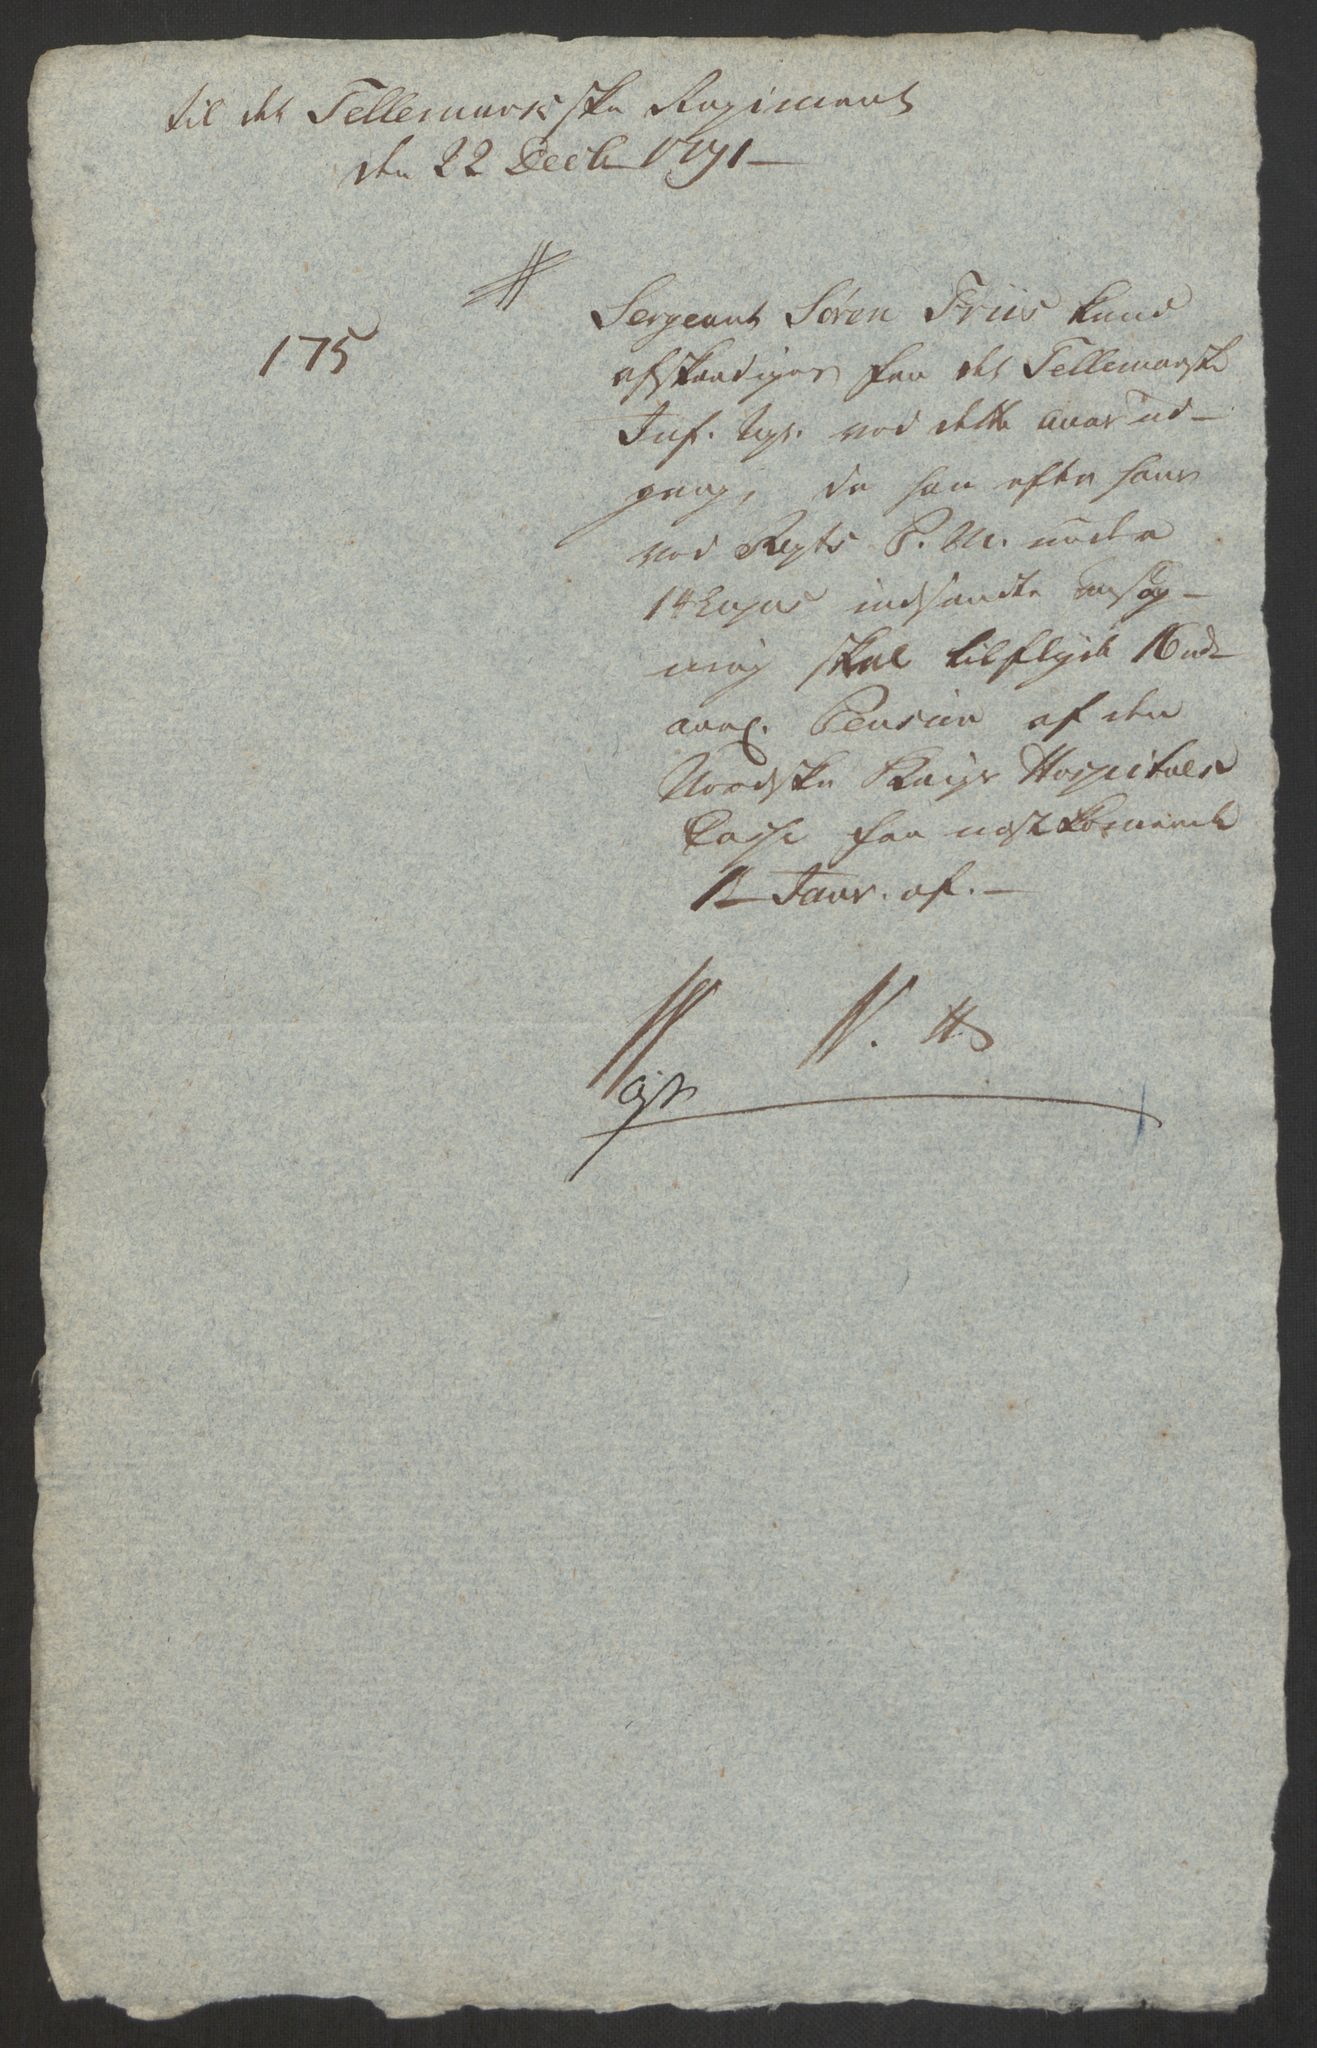 til det Tellemarkske Regiment
den 22 Decbr 1791
175
Sergeant Søren Friis kand
afskediges fra det Tellemarkske
Inf. Regt. ved dette aars ud-
gang, da han efter hans
ved Regts P. M. under
14 indsendte ansøg-
ning skal tilflyde
aarl. Pension af den
Nordske Krigs Hospitals
Casse fra nestkommende
1te Janr. af.
N. H.